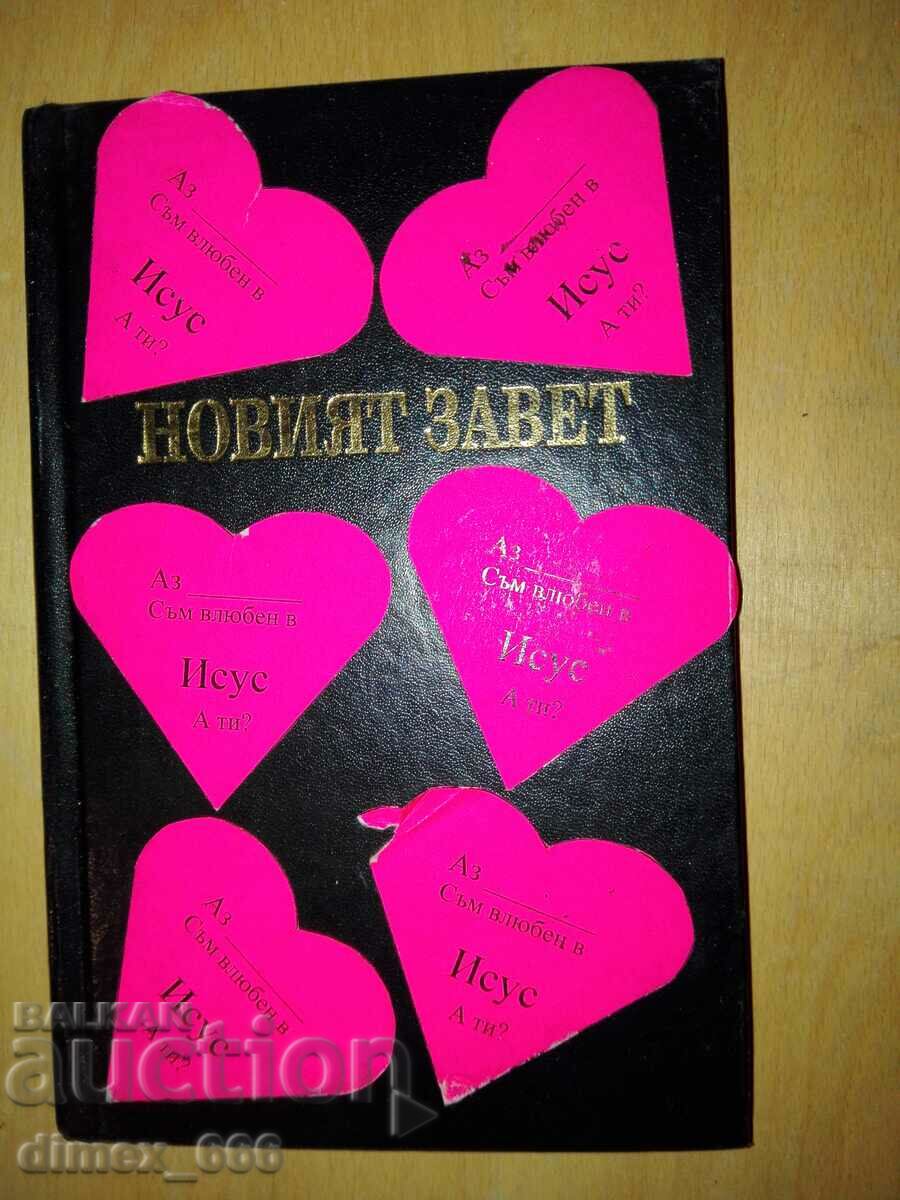 Аз
Съм влюбен в
Исус
А ти?
Аз
Съм влюбен в
Исус
А ти?
НОВИЯТ ЗАВЕТ
Аз
Съм влюбен в
Исус
А ти?
Аз
Съм влюбен в
Исус
А ти?
Аз
Съм влюбен в
Исус
А ти?
Аз
Съм влюбен в
Исус
А ти?
BALKAN
auction
dimex_666